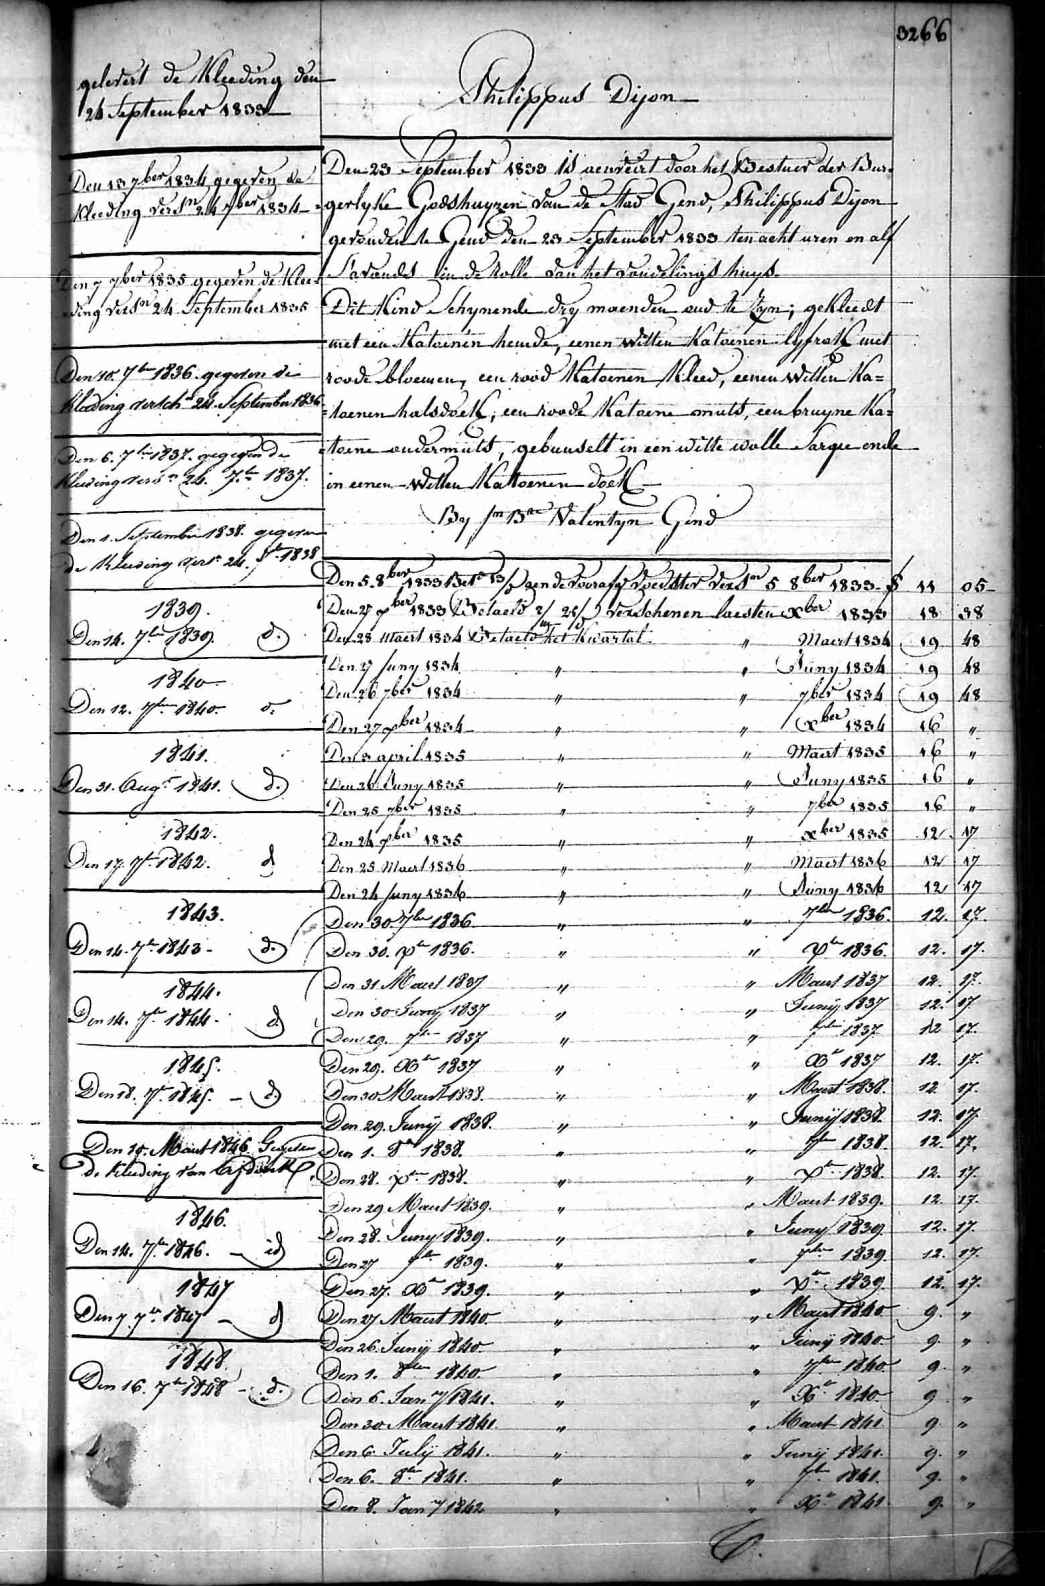 3266
gelevert de Kleeding den
24 September 1833
Philippus Dijon
Den 13 7ber 1834 gegeven de
Kleeding versn 24 7ber 1834
Den 7 7ber 1835 gegeven de Klee-
ding versn 24 September 1835
Den 10. 7br 1836. gegeven de
Kleeding versch 24 September 1836
Den 6. 7br 1837. gegeven de
Kleeding vers 24. 7br 1837.
Den 1. September 1838. gegeven
de Kleeding vers 24. 7br 1838
1839.
Den 14. 7br 1839. d.
1840
Den 12. 7br 1840 d.
1841.
Den 31. Augt 1841. d.
1842.
Den 17. 7br 1842. d
1843.
Den 14. 7br 1843 - d.
1844.
Den 14. 7br 1844. d
1845.
Den 18. 7br 1845. - d
Den 19. Maert 1846 Gegeven
de Kleeding van
1846.
Den 14. 7br 1846. - id
1847
Den 7. 7br 1847 - d
1848.
Den 16. 7br 1848 - d.
Den 23 September 1833 is aenveirt door het Bestuer der Bur-
gerlyke Godshuyzen van de Stad Gend, Philippus Dijon
gevonden te Gend den 23 September 1833 ten acht uren en alf
s'avends in de rolle van het vondelings huys.
Dit Kind Schynende dry maenden oud te Zyn; gekleedt
met een Katoenen hemde, eenen witten Katoenen lyfrok met
roode bloemen, een rood Katoenen Kleed, eenen witten Ka=
toenen halsdoek, een roode Katoene muts, een bruyne Ka-
toene ondermuts, gebunselt in een witte wolle Sargie ende
in eenen witten Katoenen doek
By Valentyn Gend
Den 5. 8ber 1833 aen de voorafg voedster versn 5 8ber 1833 - f 11 05
Den 27 xber 1833 Betaeld verschenen laesten xber 1833 18 38
Den 28 maert 1834 Betaeld het Kwartal. " Maert 1834 19 48
Den 27 Juny 1834 " " Juny 1834 19 48
Den 26 7ber 1834 " " 7ber 1834 19 48
Den 27 xber 1834 " " xber 1834 16 "
Den 3 april 1835 " " Maert 1835 16 "
Den 26 Juny 1835 " " Juny 1835 16 "
Den 25 7ber 1835 " " 7ber 1835 16 "
Den 24 xber 1835 " " xber 1835 12 17
Den 25 Maert 1836 " " Maert 1836 12 17
Den 24 Juny 1836 " " Juny 1836 12 17
Den 30. 7br 1836 " " 7br 1836. 12. 17.
Den 30. xbr 1836. " " xbr 1836. 12. 17.
Den 31 Maert 1837 " " Maert 1837 12. 17.
Den 30 Juny 1837 " " Juny 1837 12. 17
Den 29. 7br 1837 " " 7br 1837 12 17.
Den 29. Xbr 1837 " " Xbr 1837 12. 17.
Den 30 Maert 1838. " " Maert 1838. 12 17.
Den 29. Juny 1838. " " Juny 1838. 12. 17.
Den 1. 8br 1838. " " 7br 1838. 12. 17.
Den 28. xbr 1838. " " xbr 1838. 12. 17.
Den 29 Maert 1839. " " Maert 1839. 12. 17.
Den 28. Juny 1839. " " Juny 1839. 12. 17.
Den 27 7br 1839. " " 7br 1839. 12. 17.
Den 27. Xbr 1839. " " xbr 1839. 12. 17.
Den 27 Maert 1840. " " Maert 1840 9. "
Den 26. Juny 1840. " " Juny 1840. 9. "
Den 1. 8br 1840. " " 7br 1840. 9. "
Den 6. Jany 1841. " " Xbr 1840. 9 "
Den 30 Maert 1841. " " Maert 1841 9 "
Den 6 July 1841. " " Juny 1841. 9. "
Den 6. 8br 1841. " " 7br 1841. 9. "
Den 8. Jany 1842 " " Xbr 1841 9. "